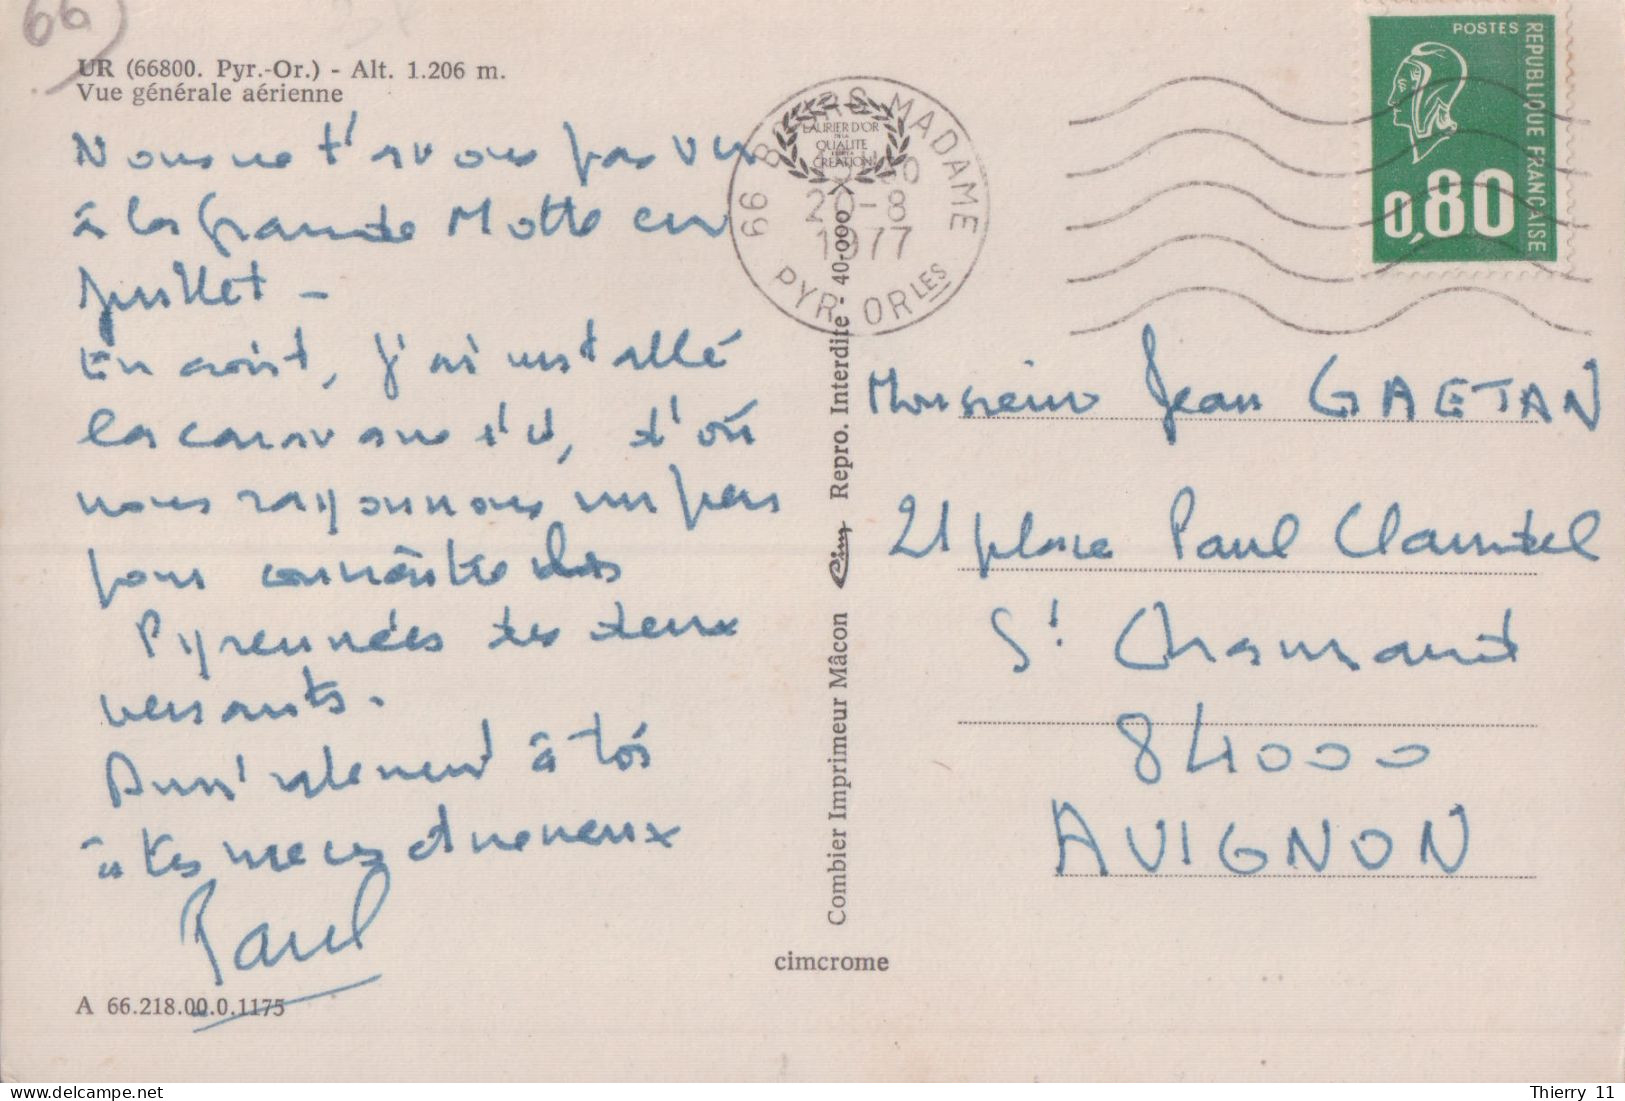 66
UR (66800. Pyr.-Or.) - Alt. 1.206 m.
Vue générale aérienne
Nous ne t'avons pas vu
à la Grande Motte en
Juillet -
En août, j'ai installé
la caravane ici, d'où
nous rayonnons un peu
pour connaître les
Pyrennées des deux
versants.
Amicalement à toi
à tes nièces et neveux
Paul
A 66.218.00.0.1175
66 BOURG MADAME
20-8
1977
PYR. ORLES
LAURIER D'OR
DE LA
QUALITE
CREATION
POSTES
REPUBLIQUE FRANCAISE
0,80
Combier Imprimeur Mâcon Cim Repro. Interdite - 40.000
cimcrome
Monsieur Jean GAETAN
21 place Paul Claudel
St Chamand
84000
AVIGNON
Thierry 11